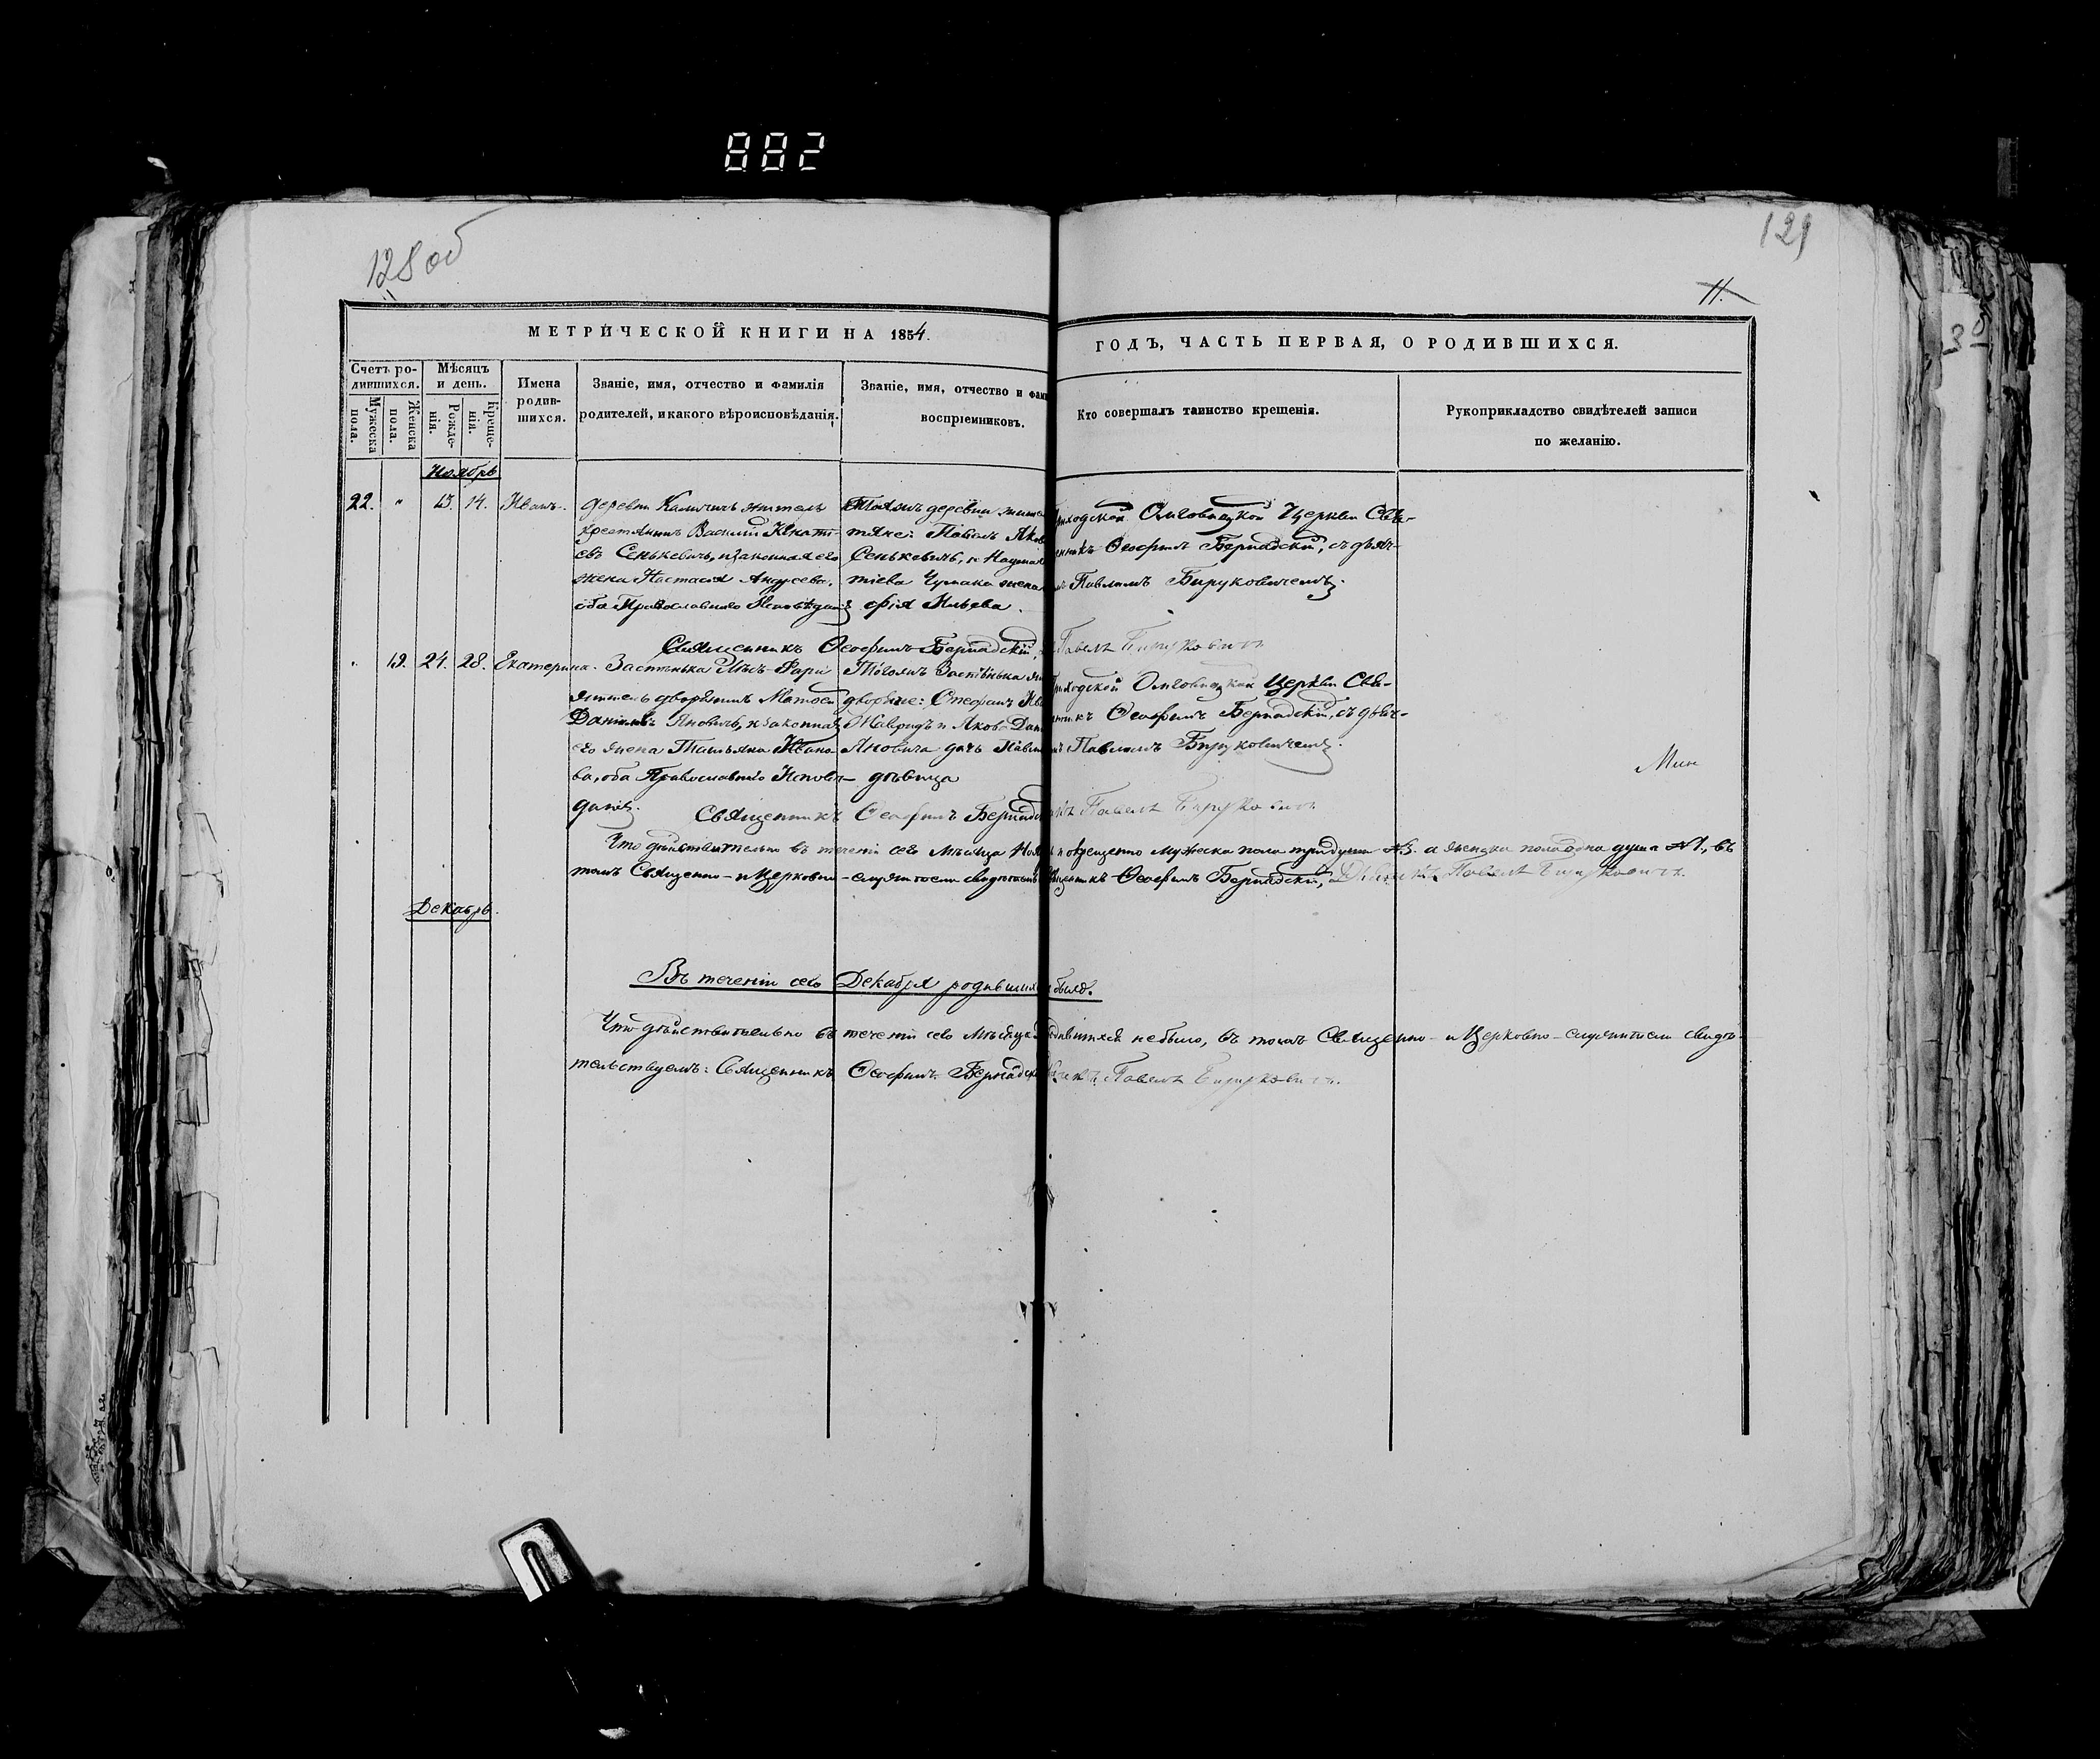 882
128 об
129
11.
МЕТРИЧЕСКОЙ КНИГИ НА 1854.
ГОДЪ, ЧАСТЬ ПЕРВАЯ, О РОДИВШИХСЯ.
Счетъ ро-
дившихся.
Мужеска
пола.
Женска
пола.
Мѣсяцъ
и день.
Рожде-
нія.
Креще-
нія.
Имена
родив-
шихся.
Званіе, имя, отчество и фамилія
родителей, и какого вѣроисповѣданія.
Званіе, имя, отчество и фами
воспріемниковъ.
Кто совершалъ таинство крещенія.
Рукоприкладство свидѣтелей записи
по желанію.
Ноябрь
22. " 13. 14. Иванъ.
деревни житель
крестьянинъ Василій Игнатi-
евъ Сенькевичъ, и законная его
жена Настасія Андреева,
оба Православнаго Исповѣданія
деревни жите
Яков
Сенькевичъ, и
тіева Чумака жена
офія Ильева.
Омговицкой Церкви Свя-
Ѳеофилъ Бернадскій, съ дьяч-
Павломъ Бируковичемъ.
Священникъ Ѳеофилъ Бернадскій,
Павелъ Бируковичъ
" 19. 24. 28. Екатерина.
Застѣнка
житель дворянинъ Матѳей
Даніиловъ Яновичъ, и законная
его жена Татьяна Ивано-
ва, оба Православнаго Исповѣ-
данія.
Застѣнка
дворяне: Стефанъ
и Яков. Дан
Яновича дочь
дѣвица
Омговицкой Церкви Свя-
Ѳеофилъ Бернадскій, съ дьяч-
Павломъ Бируковичемъ.
Мин
Священникъ Ѳеофилъ Бернадс
Павелъ Бируковичъ
Что дѣйствительно въ теченіи сего Мѣсяца Нояб крещенно мужеска пола три души №3. а женска пола одна душа №1., въ
томъ Священно- и Церковно-служители свидѣтельс Ѳеофилъ Бернадскій, Павелъ Бируковичъ
Декабрь.
Въ теченіи сего Декабря родившихся было.
Что дѣйствительно въ теченіи сего Мѣсяца родившихся небыло, въ томъ Священно- и Церковно-служители свидѣ-
тельствуемъ: Священникъ Ѳеофилъ Бернадск Павелъ Бируковичъ.